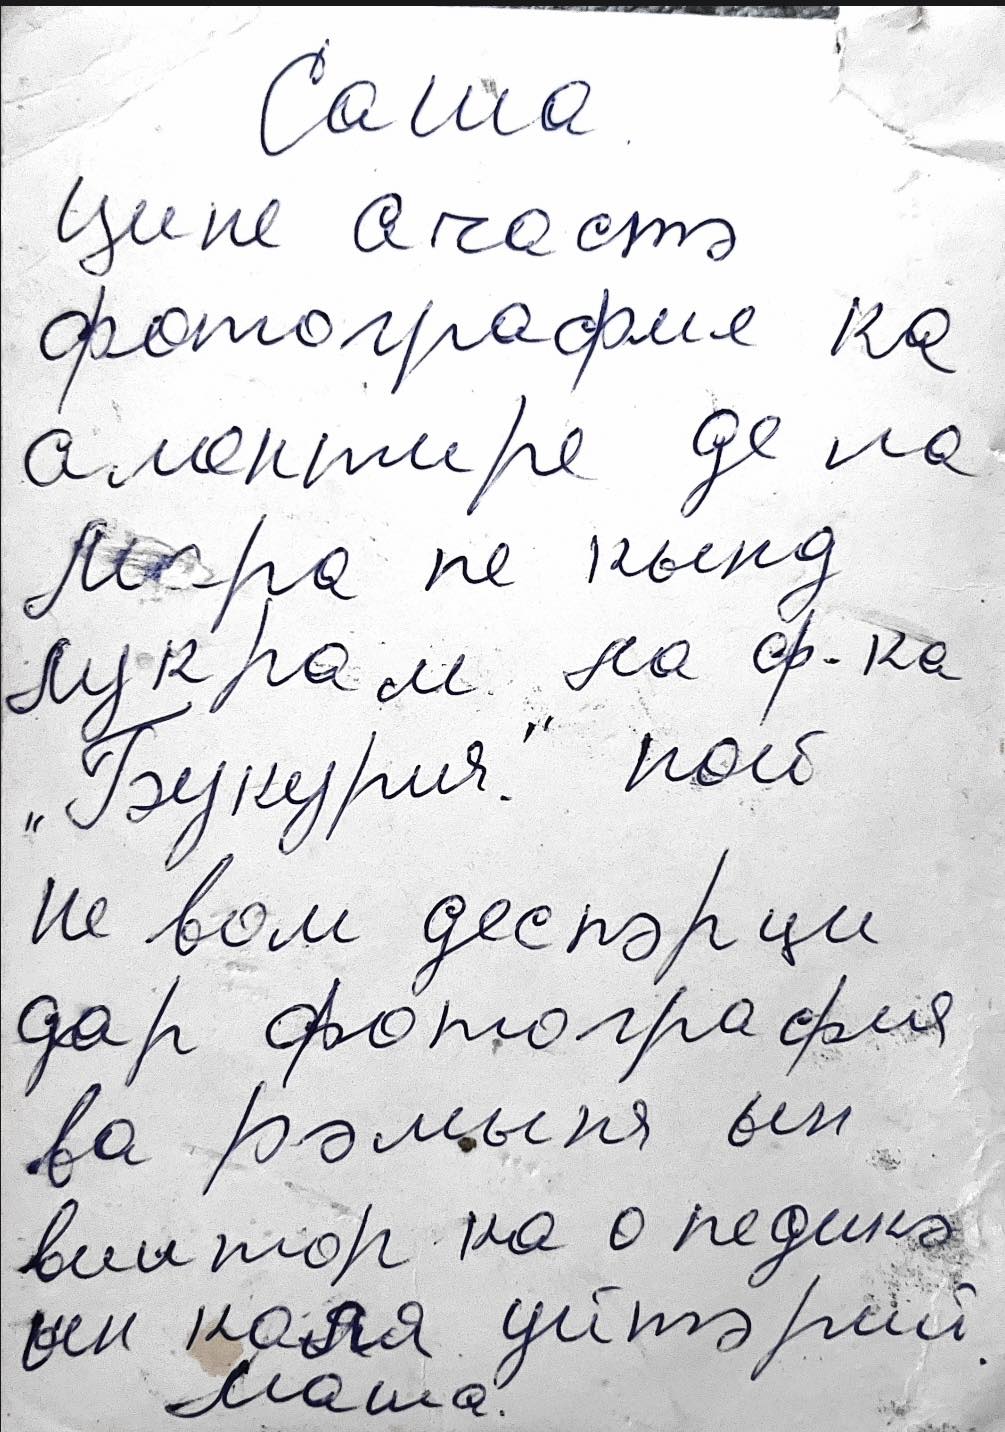 Саша
Цине ачастэ
фотография ка
аментире де ла
Мара пе кынд
лукрам ла ф-ка
„Букурия." пой
не вом деспэрци
дар фотография
ва рэмыня ын
виитор ка о педикэ
ын каля уйтэрий.
Маша.